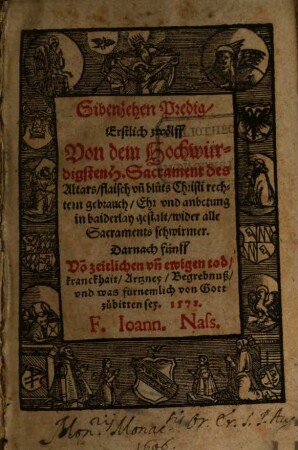 Sibenzehen Predig/
Erstlich zwölff
Von dem Hochwür-
digsten H. Sacrament des
Altars/flaisch vñ blüts Christi rech-
tem gebrauch/ Ehr vnd anbetung
in baiderlay gestalt/wider alle
Sacraments schwirmer.
Darnach fünff
Võ zeitlichen vñ ewigen tod/
kranckhait/ Artzney/ Begrebnuß/
vnd was fürnemlich von Gott
zübitten sey. 1572.
F. Ioann. Nass.